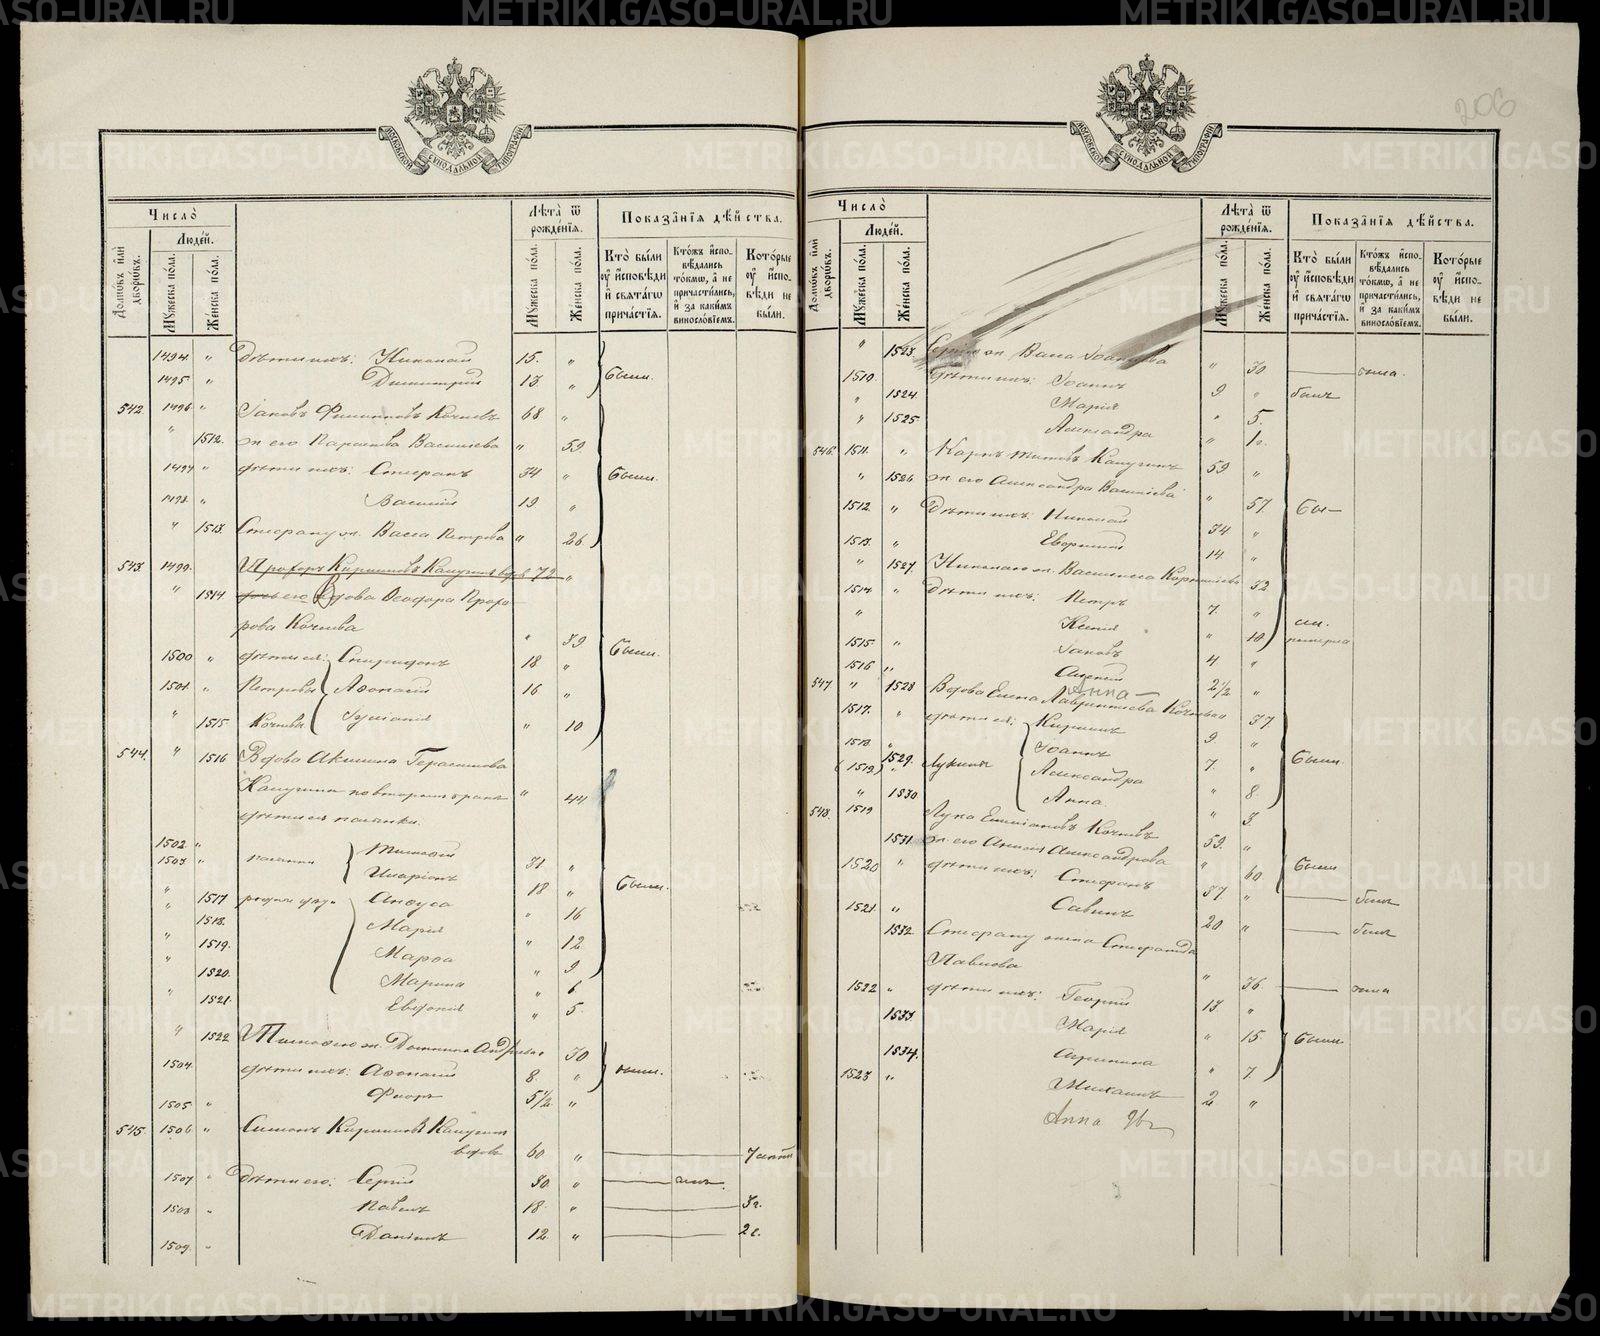 METRIKI.GASO-URAL.RU
206
МОСКОВСКОЙ СѴНОДАЛЬНОЙ ТИПОГРАФІИ
Число
Людей.
Домѡвъ или дворѡвъ.
Мужеска пола.
Женска пола.
Лѣта ѿ рожденїѧ.
Мужеска пола.
Женска пола.
Показанїѧ дѣйства.
Кто были оу исповѣди и свѧтагѡ причастїѧ.
Ктожъ исповѣдались токмѡ, а не причастились, и за какимъ винословїемъ.
Которые оу исповѣди не были.
1494 " Дѣти ихъ: Николай 15. "
1495 " Димитрий 13 " были.
542 1496 " Іаковъ Филипповъ Кочневъ 68 "
" 1512. ж. его Параскева Васильева " 59
1497 " дѣти ихъ: Стефанъ 34 " были.
1498 " Василий 19 "
" 1513 Стефану ж. Васса Петрова " 26
543 1499. Прохоръ Кириловъ Калугинъ вдов 72 "
" 1514 вдова Ѳеодора Прохо-
рова Кочнева " 39 были.
1500 " дѣти ея: Спиридонъ 18 "
1501 " Петровы Аѳонасій 16 "
" 1515 Кочневы Іуліанія " 10
544. " 1516 Вдова Акилина Герасимова
Калугина по второмъ бракѣ " 44
дѣти ея пасынки.
1502 " Тимоѳей 31 "
1503 " пасынки Иларіонъ 18 " были.
" 1517 Анѳуса " 16
" 1518. Марія " 12
" 1519. Марѳа " 9
" 1520. Марина " 6
" 1521. Евдокія " 5
" 1522 Тимоѳею ж. Домника Андреева 30
1504 дѣти ихъ: Аѳонасій 8 "
1505 " Флоръ 5½ "
545 1506 " Симонъ Кириловъ Калугинъ
вдовъ 60 "
1507 " Дѣти его: Сергій 30 "
1508 " Павелъ 18 " 3 г.
1509 " Даніилъ 12 " 2 г.
Число
Людей.
Домѡвъ или дворѡвъ.
Мужеска пола.
Женска пола.
Лѣта ѿ рожденїѧ.
Мужеска пола.
Женска пола.
Показанїѧ дѣйства.
Кто были оу исповѣди и свѧтагѡ причастїѧ.
Ктожъ исповѣдались токмѡ, а не причастились, и за какимъ винословїемъ.
Которые оу исповѣди не были.
" 1523 Сергію ж. Васса Іоаннова " 30
1510. дѣти ихъ: Іоаннъ 9 " былъ
" 1524 Марія " 5.
" 1525 Александра " 1 г.
546. 1511. " Карпъ Титовъ Калугинъ 59 "
" 1526 ж. его Александра Васильева " 57
1512 " Дѣти ихъ: Николай 34 "
1513. " Евфимій 14 "
" 1527. Николаю ж. Василиса Корнилова 32
1514 " дѣти ихъ: Петръ 7 "
" Ксенія " 10
1515 " Іаковъ 4 "
1516 " Алексій 2½ "
Анна
547 " 1528 Вдова Елена Лаврентиева Кочнева 37
1517. " дѣти ея: Кириллъ 9 "
1518. " Іоаннъ 7. " были.
(1519) 1529. Лукины Александра " 8
" 1530 Анна " 3.
548. 1519 Лука Емиліановъ Кочневъ 59. "
1531 ж. его Анисія Александрова " 60 были
1520 " дѣти ихъ: Стефанъ 37 " былъ
1521 " Савинъ 20 " былъ
1532 Стефану жена Стефанида
Павлова " 36
1522 " дѣти ихъ: Георгій 13 "
1533 Марія " 15. были.
1534. Акилина " 7
1523 " Михаилъ 2 "
Анна